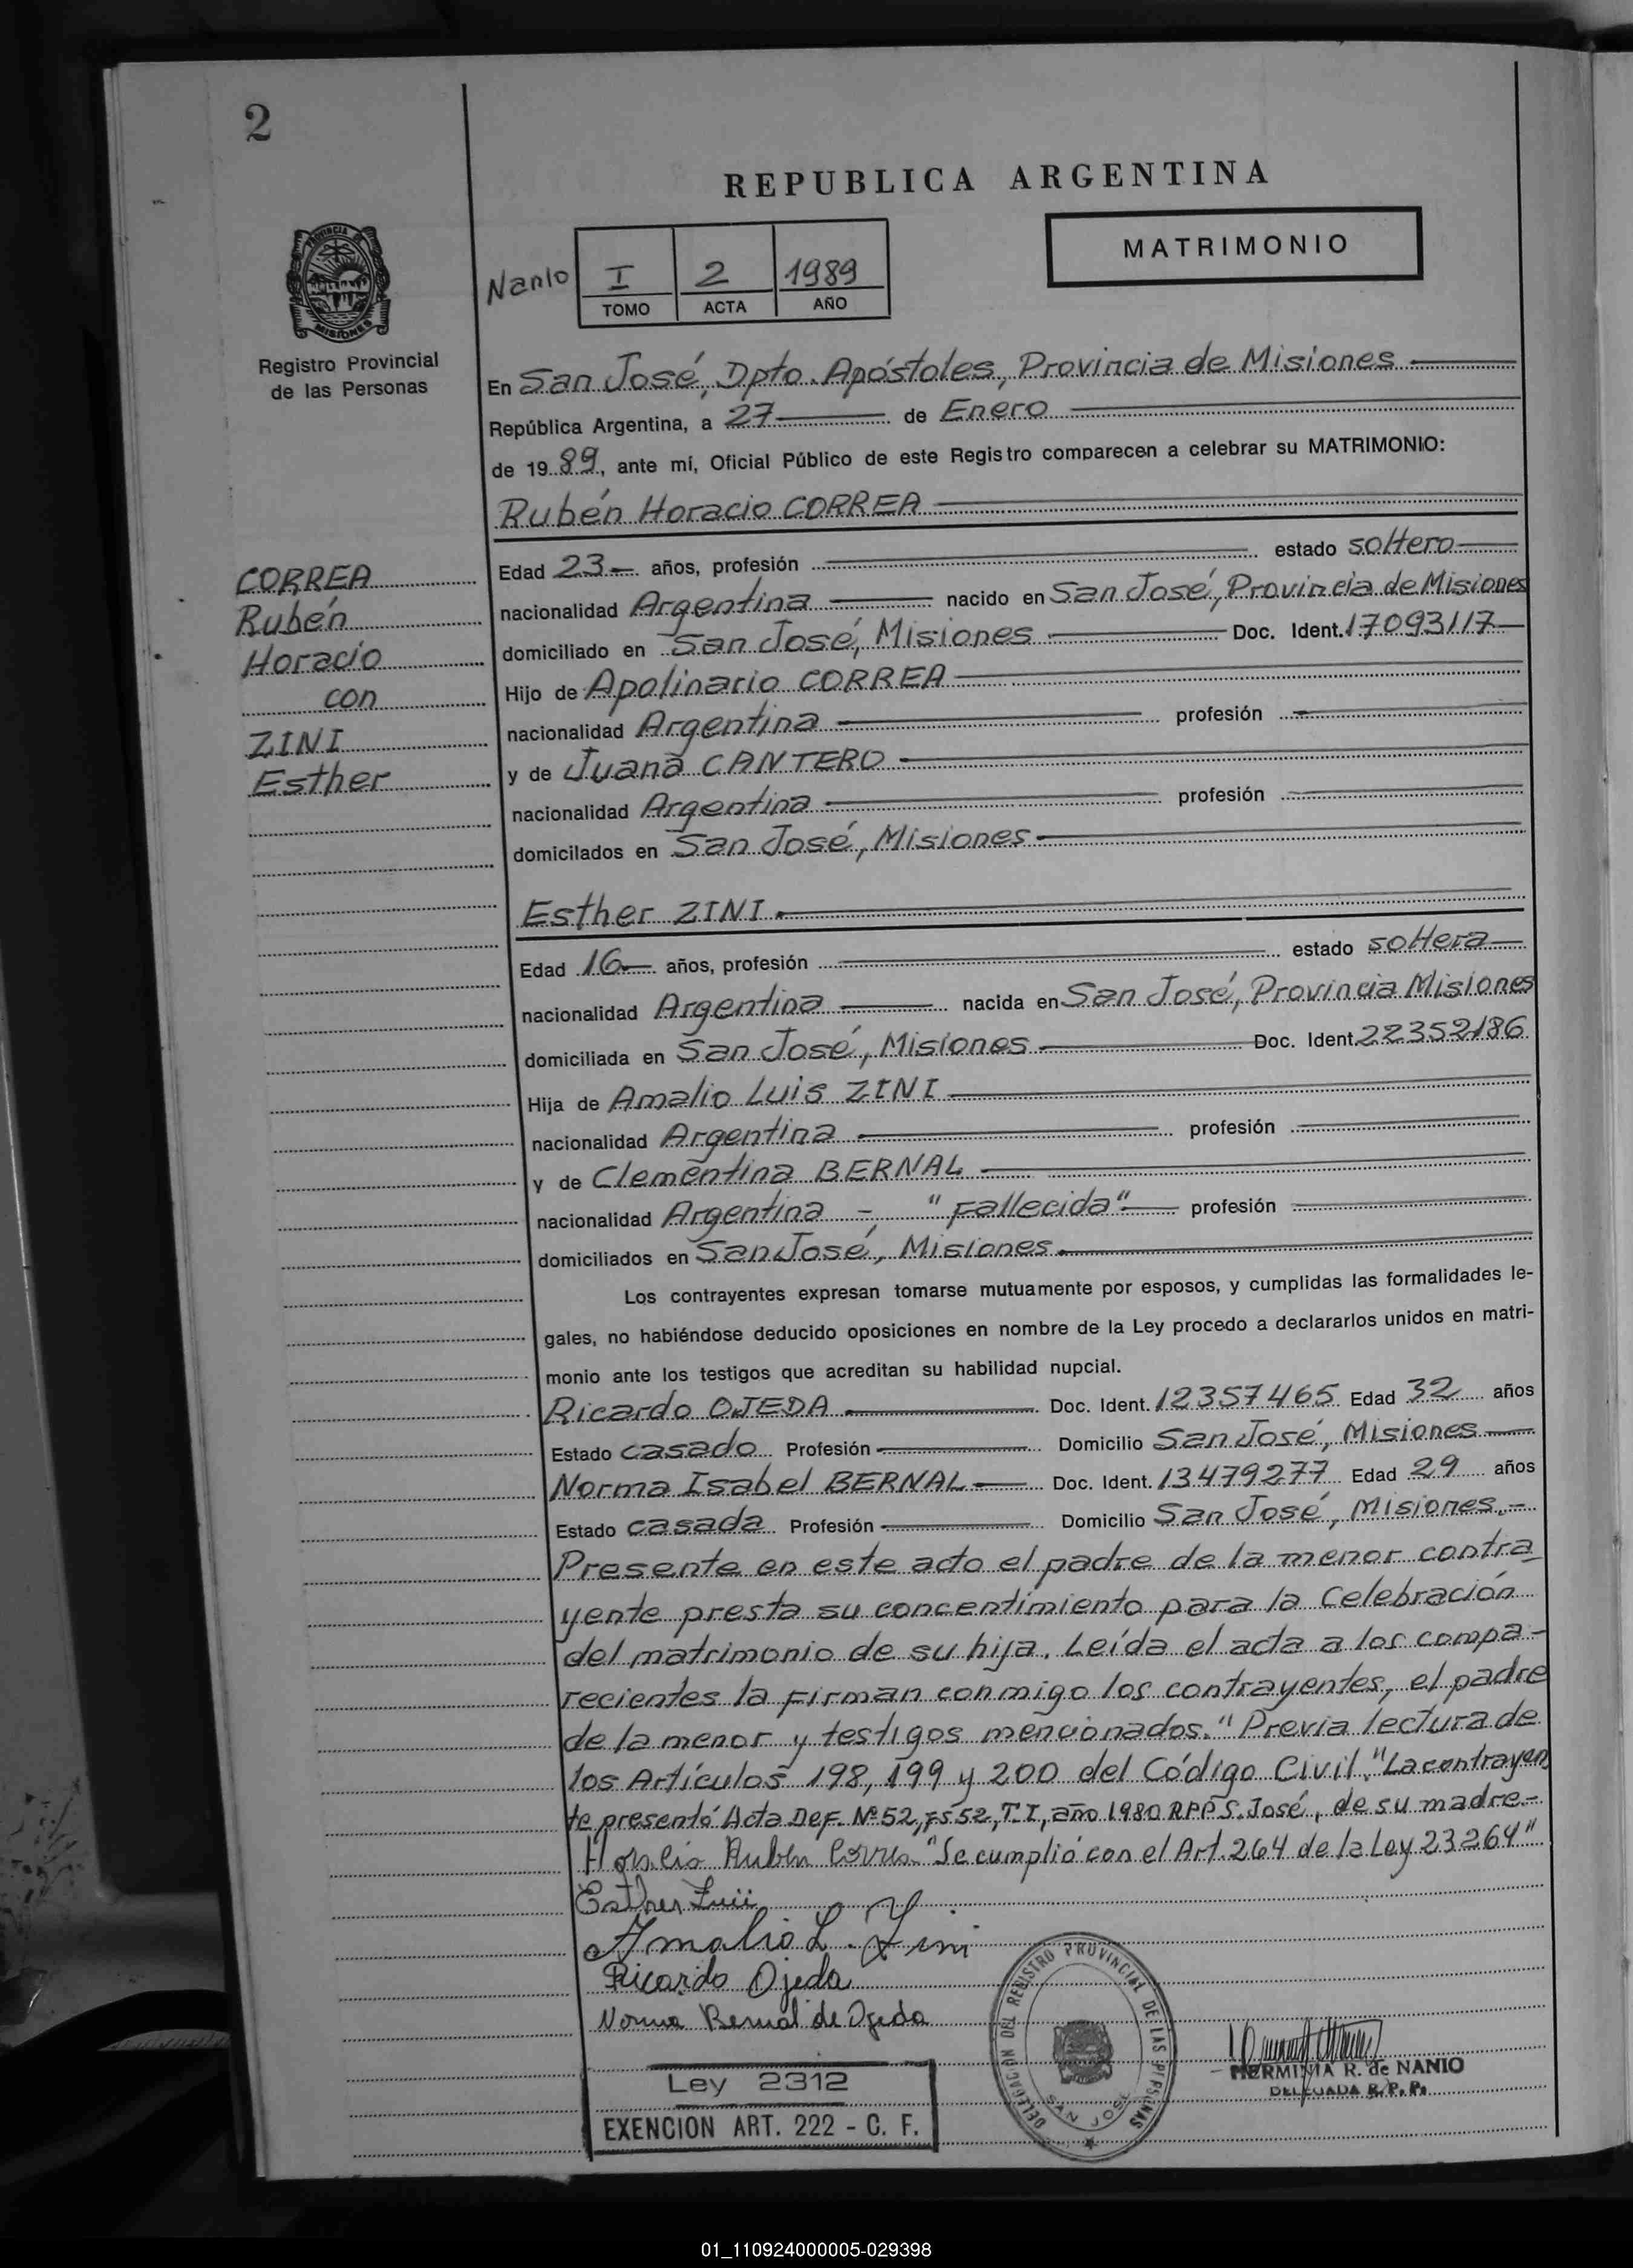 2
REPUBLICA ARGENTINA
MATRIMONIO
Nanio
I 2 1989
TOMO ACTA AÑO
PROVINCIA DE MISIONES
Registro Provincial
de las Personas
CORREA
Rubén
Horacio
con
ZINI
Esther
En San José, Dpto. Apóstoles, Provincia de Misiones
República Argentina, a 27 de Enero
de 19 89, ante mí, Oficial Público de este Registro comparecen a celebrar su MATRIMONIO:
Rubén Horacio CORREA
Edad 23 años, profesión estado soltero
nacionalidad Argentina nacido en San José, Provincia de Misiones
domiciliado en San José, Misiones Doc. Ident. 17093117
Hijo de Apolinario CORREA
nacionalidad Argentina profesión
y de Juana CANTERO
nacionalidad Argentina profesión
domicilados en San José, Misiones
Esther ZINI
Edad 16 años, profesión estado soltera
nacionalidad Argentina nacida en San José, Provincia Misiones
domiciliada en San José, Misiones Doc. Ident. 22352186
Hija de Amalio Luis ZINI
nacionalidad Argentina profesión
y de Clementina BERNAL
nacionalidad Argentina - "Fallecida" profesión
domiciliados en San José, Misiones
Los contrayentes expresan tomarse mutuamente por esposos, y cumplidas las formalidades le-
gales, no habiéndose deducido oposiciones en nombre de la Ley procedo a declararlos unidos en matri-
monio ante los testigos que acreditan su habilidad nupcial.
Ricardo OJEDA Doc. Ident. 12357465 Edad 32 años
Estado casado Profesión Domicilio San José, Misiones
Norma Isabel BERNAL Doc. Ident. 13479277 Edad 29 años
Estado casada Profesión Domicilio San José, Misiones.-
Presente en este acto el padre de la menor contra
yente presta su concentimiento para la Celebración
del matrimonio de su hija. Leída el acta a los compa-
recientes la firman conmigo los contrayentes, el padre
de la menor y testigos mencionados." Previa lectura de
los Artículos 198, 199 y 200 del Código Civil." La contrayen
te presentó Acta Def. Nº 52, Fs 52, T. I, año 1980 R.P.P. S. José, de su madre.-
Horacio Rubén Correa "Se cumplió con el Art. 264 de la Ley 23264"
Esther Zini
Amalio L. Zini
Ricardo Ojeda
Norma Bernal de Ojeda
DELEGACION DEL REGISTRO PROVINCIAL DE LAS PERSONAS
SAN JOSE
HERMINIA R. de NANIO
DELEGADA R. P. P.
Ley 2312
EXENCION ART. 222 - C. F.
01_110924000005-029398